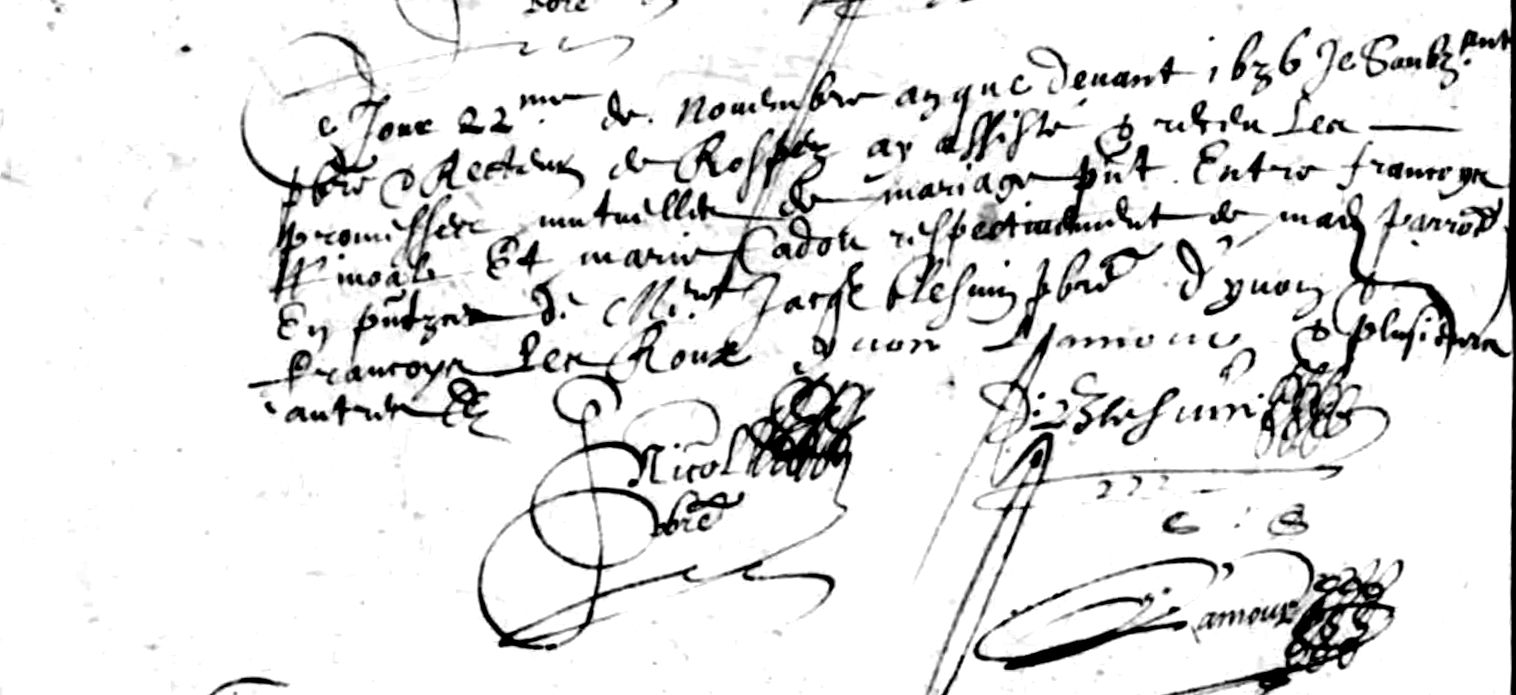 Ce Jour 22me de Novembre an que devant 1636 Je Soubz.ant
pbre & Recteur de Rospez ay assisté & receu Les
promesses mutuelles de mariage pnt. Entre francoys
Et marie Cadou respectivement de mad parroe
En pntzce de Jacqs blesvin pbre d'yvon
francoys Les Roux yvon Lamour & plusieurs
autres
Nicol
pbre
Blesvin
Lamour